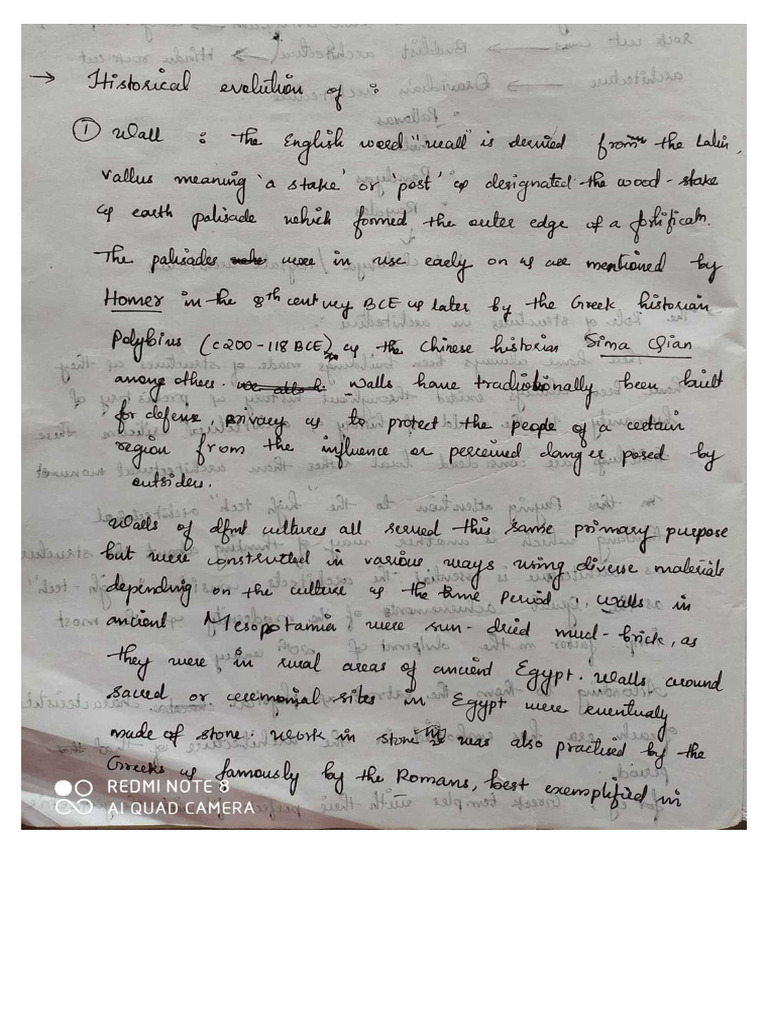 → Historical evolution of :
① Wall : the English word "wall" is derived from the Latin,
vallus meaning 'a stake' or 'post' & designated the wood-stake
& earth palisade which formed the outer edge of a fortificatn.
The palisades were in use early on & are mentioned by
Homer in the 8th century BCE & later by the Greek historian
Polybius (c200-118 BCE) & the Chinese historian Sima Qian
among others. Walls have traditionally been built
for defense, privacy & to protect the people of a certain
region from the influence or perceived danger posed by
outsiders.
Walls of dfnt cultures all served this same primary purpose
but were constructed in various ways using diverse materials
depending on the culture & the time period. Walls in
ancient Mesopotamia were sun-dried mud-brick, as
they were in rural areas of ancient Egypt. Walls around
sacred or ceremonial sites in Egypt were eventualy
made of stone. Work in stone was also practised by the
Greeks & famously by the Romans, best exemplified in
REDMI NOTE 8
AI QUAD CAMERA